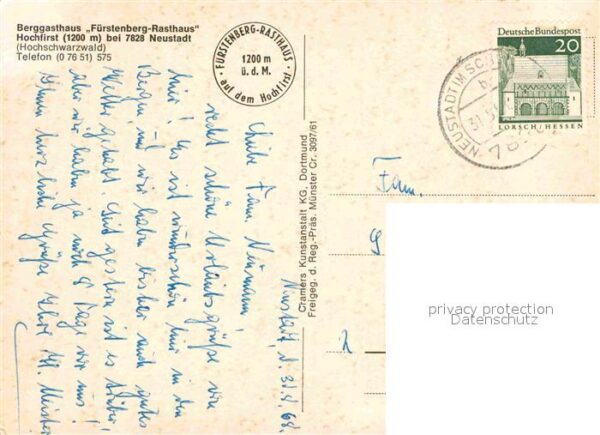 Berggasthaus „Fürstenberg-Rasthaus"
Hochfirst (1200 m) bei 7828 Neustadt
(Hochschwarzwald)
Telefon (0 76 51) 575
· FÜRSTENBERG-RASTHAUS ·
auf dem Hochfirst
1200 m
ü. d. M.
Deutsche Bundespost
20
LORSCH/HESSEN
NEUSTADT IM SC
Neustadt, d. 31.5.68.
Liebe Fam. Neumann!
recht schöne Urlaubsgrüße von
hier! Es ist wunderschön hier in den
Bergen und wir haben bisher auch gutes
Wetter gehabt. Seit gestern ist es trüber,
aber wir haben ja noch 8 Tage vor uns!
Ihnen herzliche Grüße Ihre M. Meister
Cramers Kunstanstalt KG. Dortmund
Freigeg. d. Reg.-Präs. Münster Cr. 3097/61
Fam.
privacy protection
Datenschutz